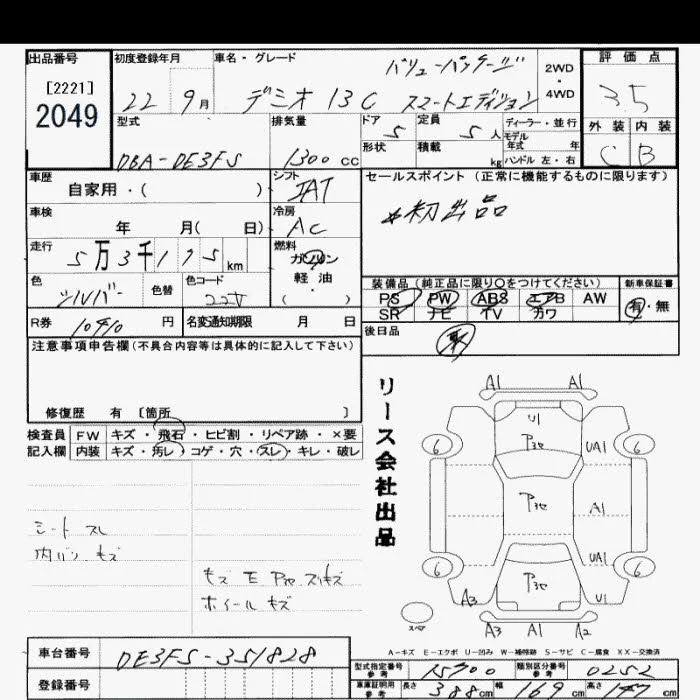 出品番号 初度登録年月 車名・グレード バリューパッケージ 評価点
[2221] 2WD
2049 22 9月 デミオ 13C スマートエディション 4WD 3.5
型式 排気量 ドア 定員 ディーラー・並行 外装 内装
5 5人 モデル年式 年
DBA-DE3FS 1300cc 形状 積載 kg ハンドル 左・右 C B
車歴 シフト セールスポイント (正常に機能するものに限ります)
自家用・( ) IAT
車検 冷房 *初出品
年 月( 日) AC
走行 燃料
5万3千175km ガソリン
色 色替 色コード 軽油 装備品 (純正品に限り○をつけてください) 新車保証書
シルバー 22V ( ・ ) PS PW ABS エアB AW 有・無
R券 10410円 名変通知期限 月 日 SR ナビ TV カワ
注意事項申告欄(不具合内容等は具体的に記入して下さい) 後日品
修復歴 有 [箇所 ]
検査員 FW キズ・飛石・ヒビ割・リペア跡・×要
記入欄 内装 キズ・汚レ・コゲ・穴・スレ・キレ・破レ
リース会社出品
A1 A1
U1
6 Pヨセ UA1 6
Pヨセ A1
UA1
6 Pヨセ 6
A3 U1
スペア A3 A1 A2
シート スレ
内バリ キズ
キズ E Pヨセ スリキズ
ホイール キズ
A-キズ E-エクボ U-凹み W-補修跡 S-サビ C-腐食 XX-交換済
車台番号 DE3FS-351828 型式指定番号 参考 15900 類別区分番号 参考 0252
登録番号 車庫証明用 参考 長さ 388cm 幅 169cm 高さ cm